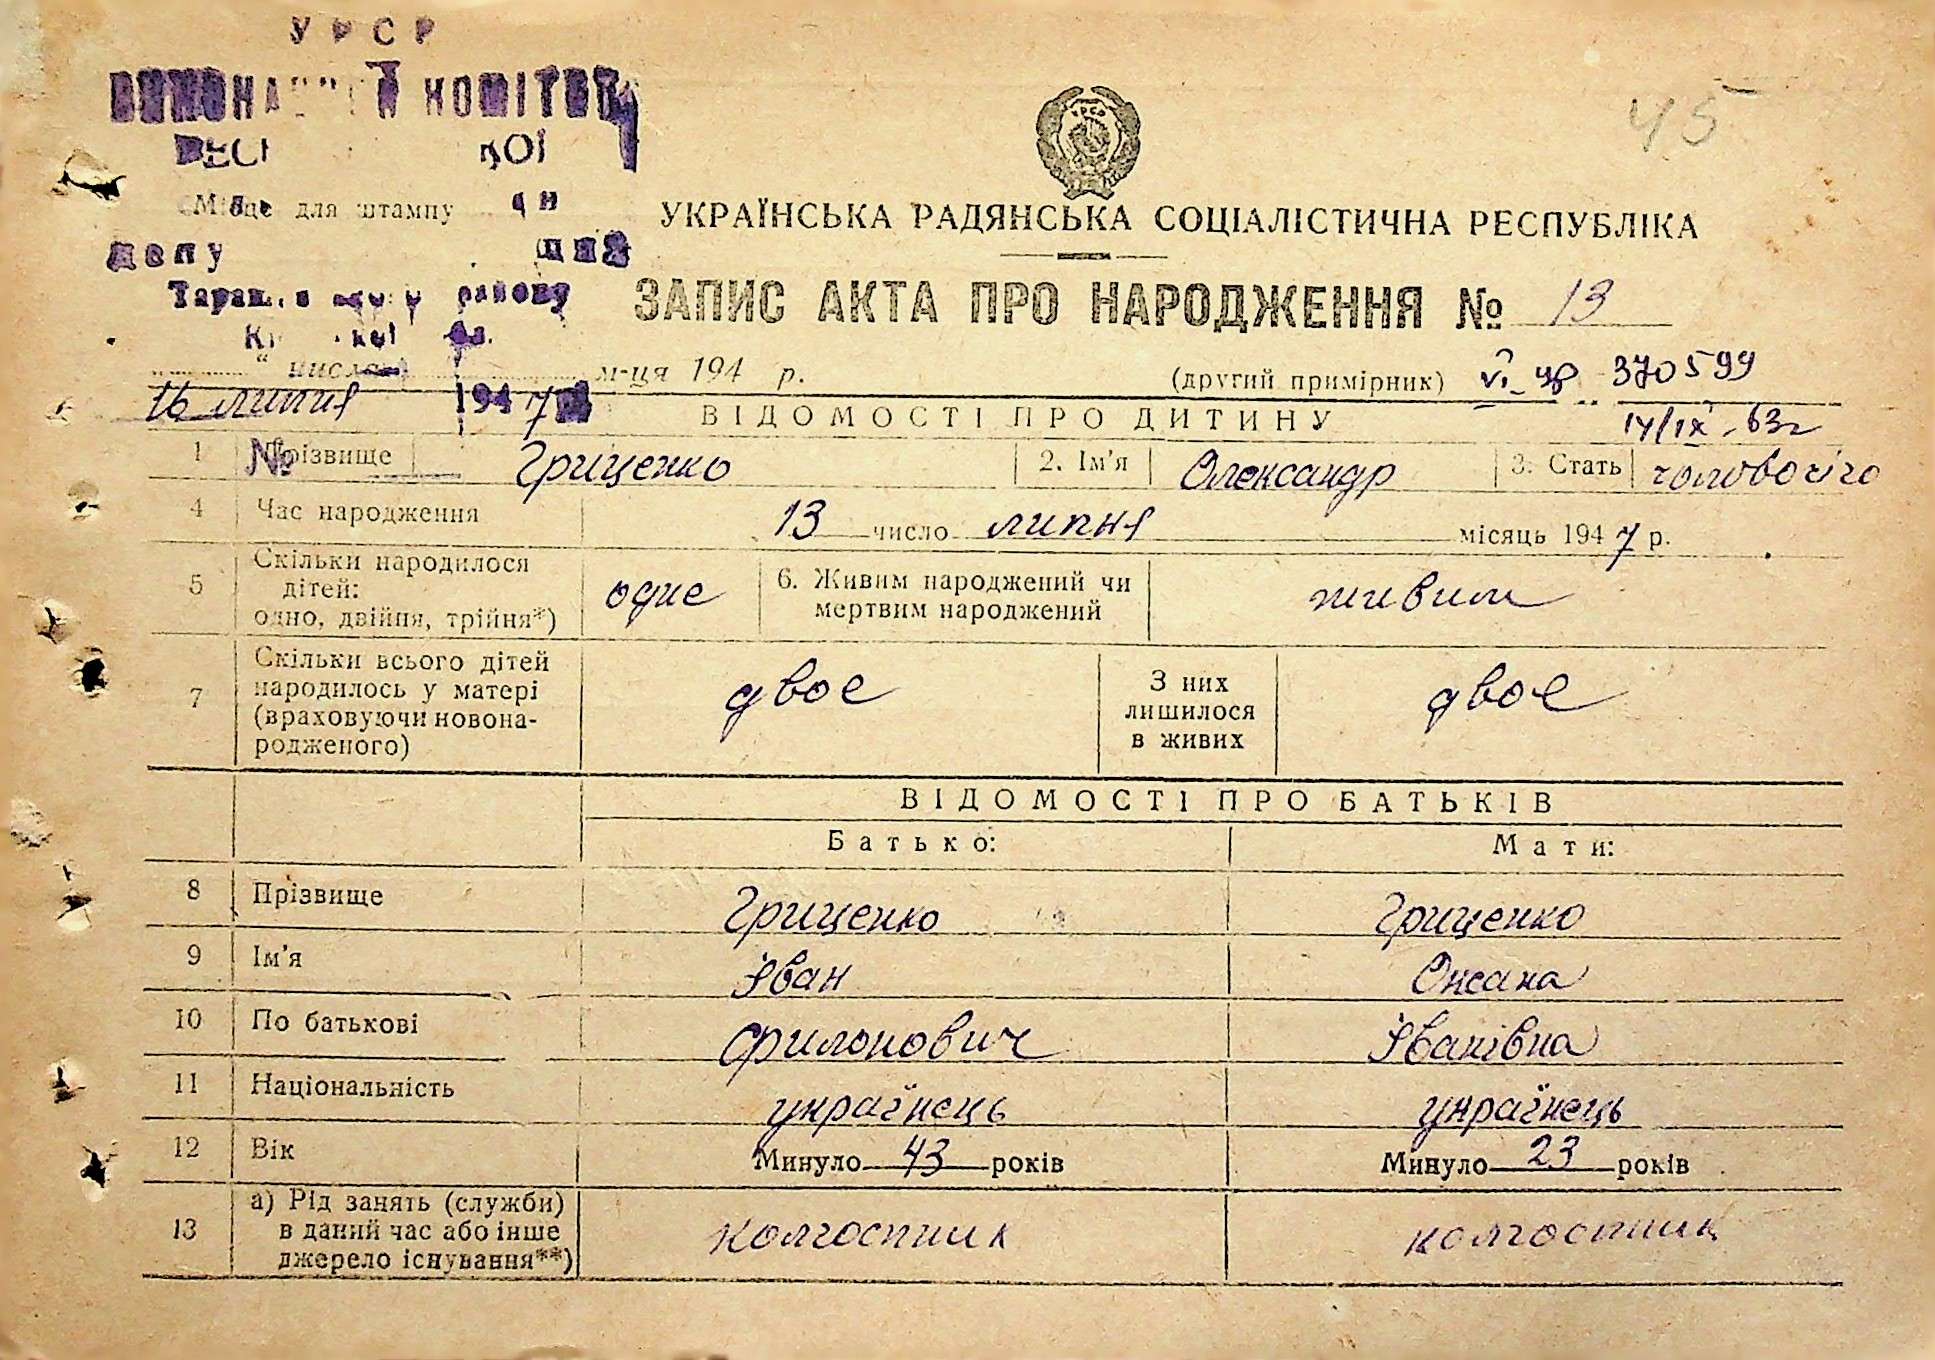 УРСР
45
КОМІТЕТ
УРСР
Місце для штампу
УКРАЇНСЬКА РАДЯНСЬКА СОЦІАЛІСТИЧНА РЕСПУБЛІКА
району
ЗАПИС АКТА ПРО НАРОДЖЕННЯ № 13
" числа м-ця 194 р.
(другий примірник) 370599
16 липня 1947
ВІДОМОСТІ ПРО ДИТИНУ
14/IX-63г
№
1 Прізвище Гриценко 2. Ім'я Олександр 3. Стать чоловочіго
4 Час народження 13 число липня місяць 1947 р.
5 Скільки народилося дітей: одно, двійня, трійня*) одне 6. Живим народжений чи мертвим народжений живим
7 Скільки всього дітей народилось у матері (враховуючи новона-родженого) двоє З них лишилося в живих двоє
ВІДОМОСТІ ПРО БАТЬКІВ
Батько: Мати:
8 Прізвище Гриценко Гриценко
9 Ім'я Іван Оксана
10 По батькові Филонович Іванівна
11 Національність українець українець
12 Вік Минуло 43 років Минуло 23 років
13 а) Рід занять (служби) в даний час або інше джерело існування**) колгоспник колгоспник